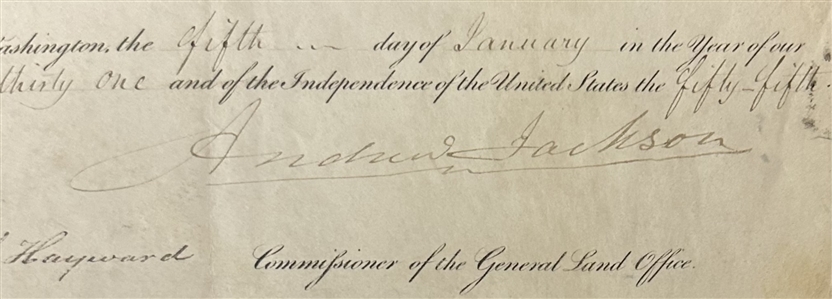 Washington, the fifth day of January in the Year of our
thirty one and of the Independence of the United States the fifty-fifth.
Andrew Jackson
Hayward Commissioner of the General Land Office.